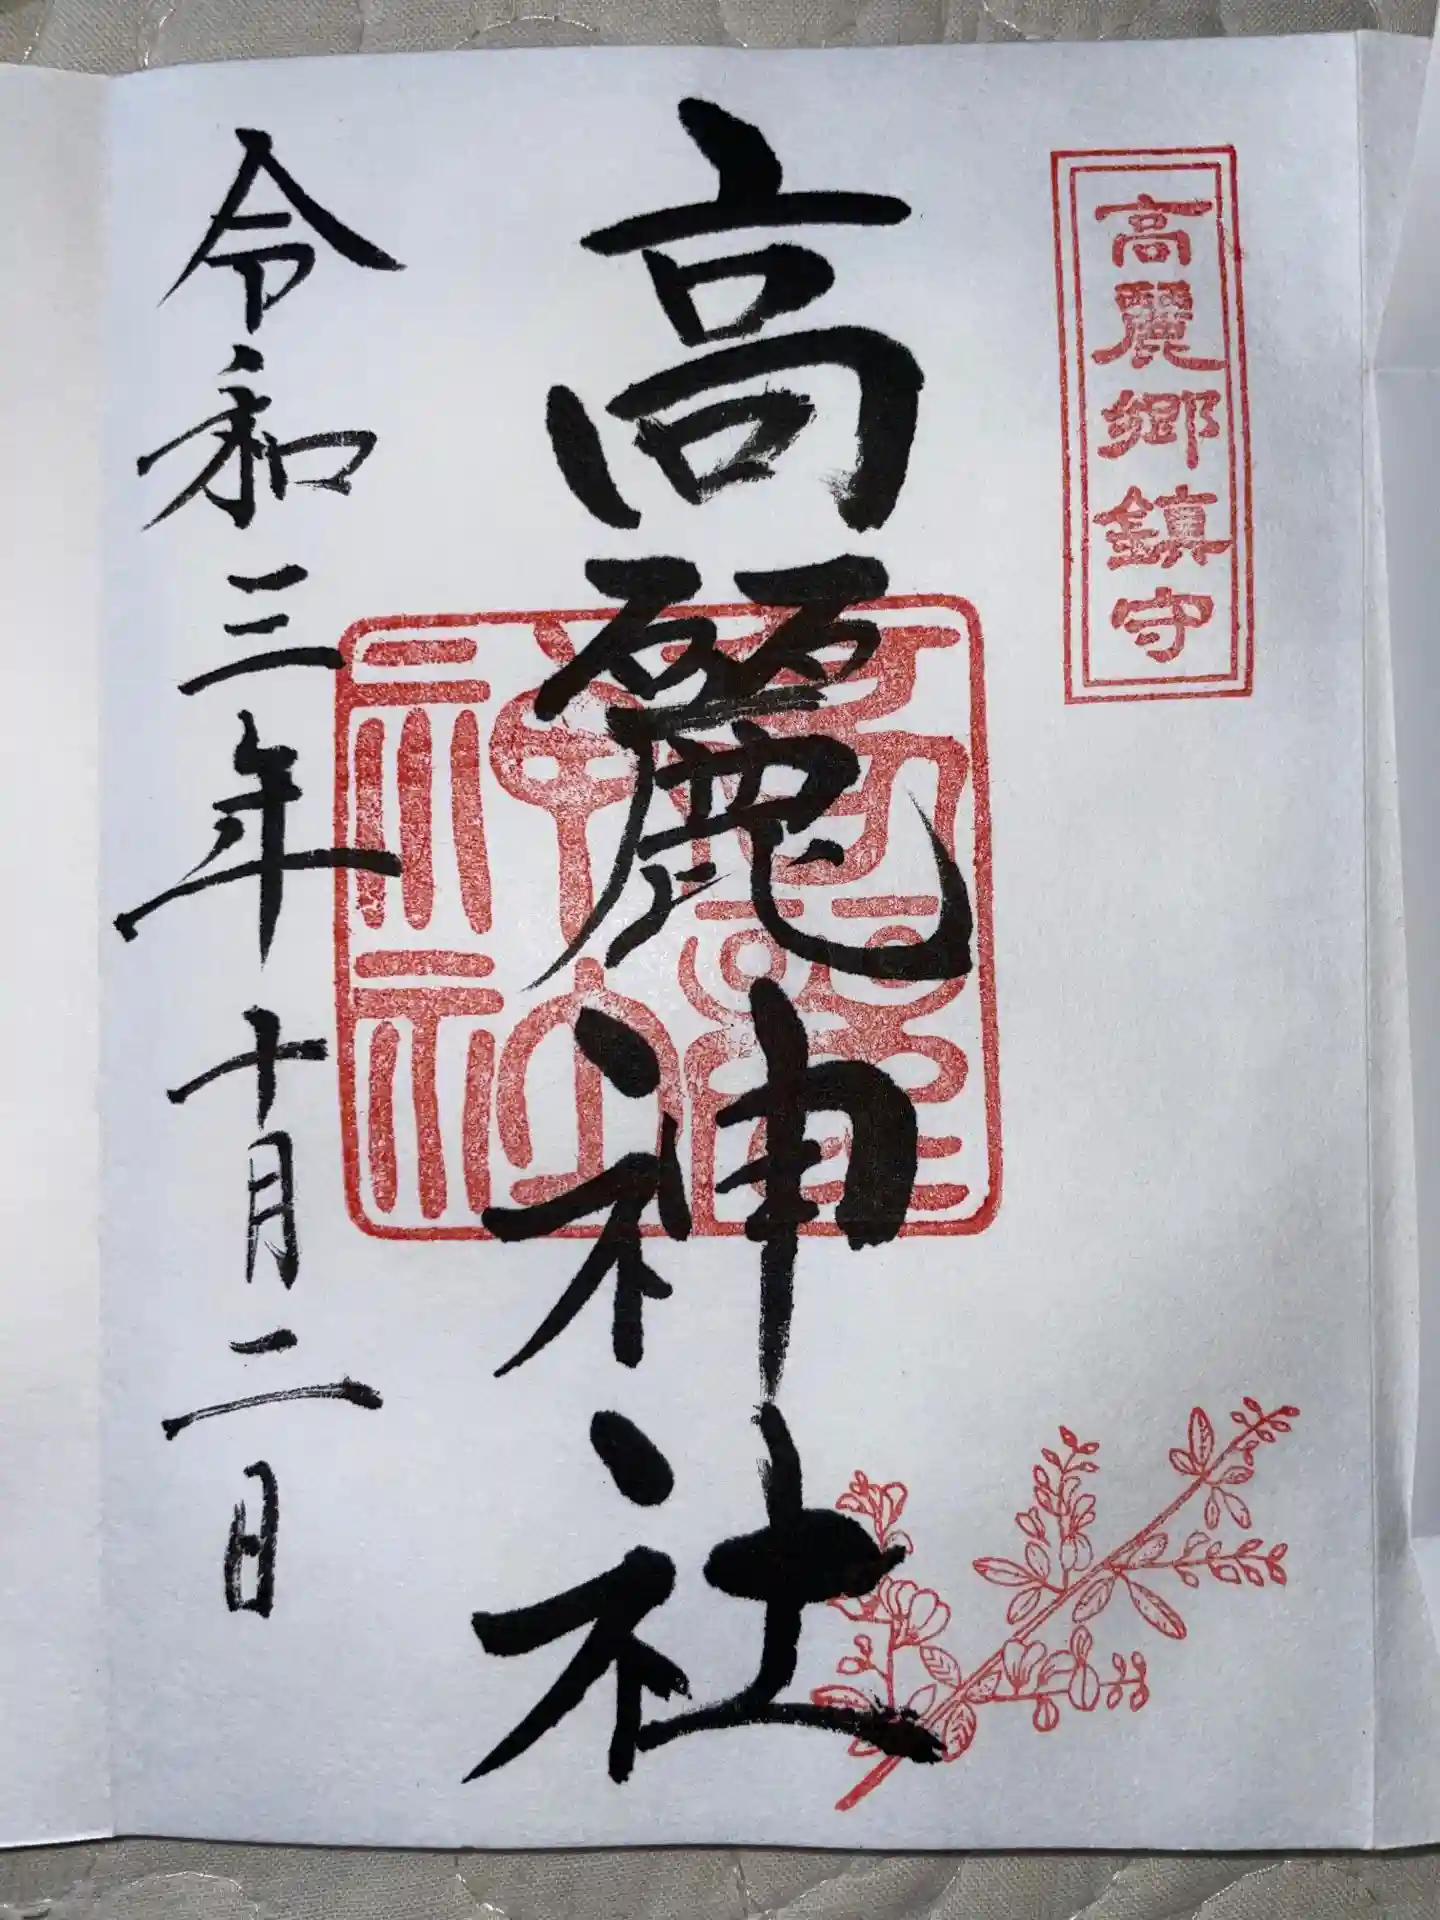 高麗郷鎮守
高麗神社
令和三年十月二日